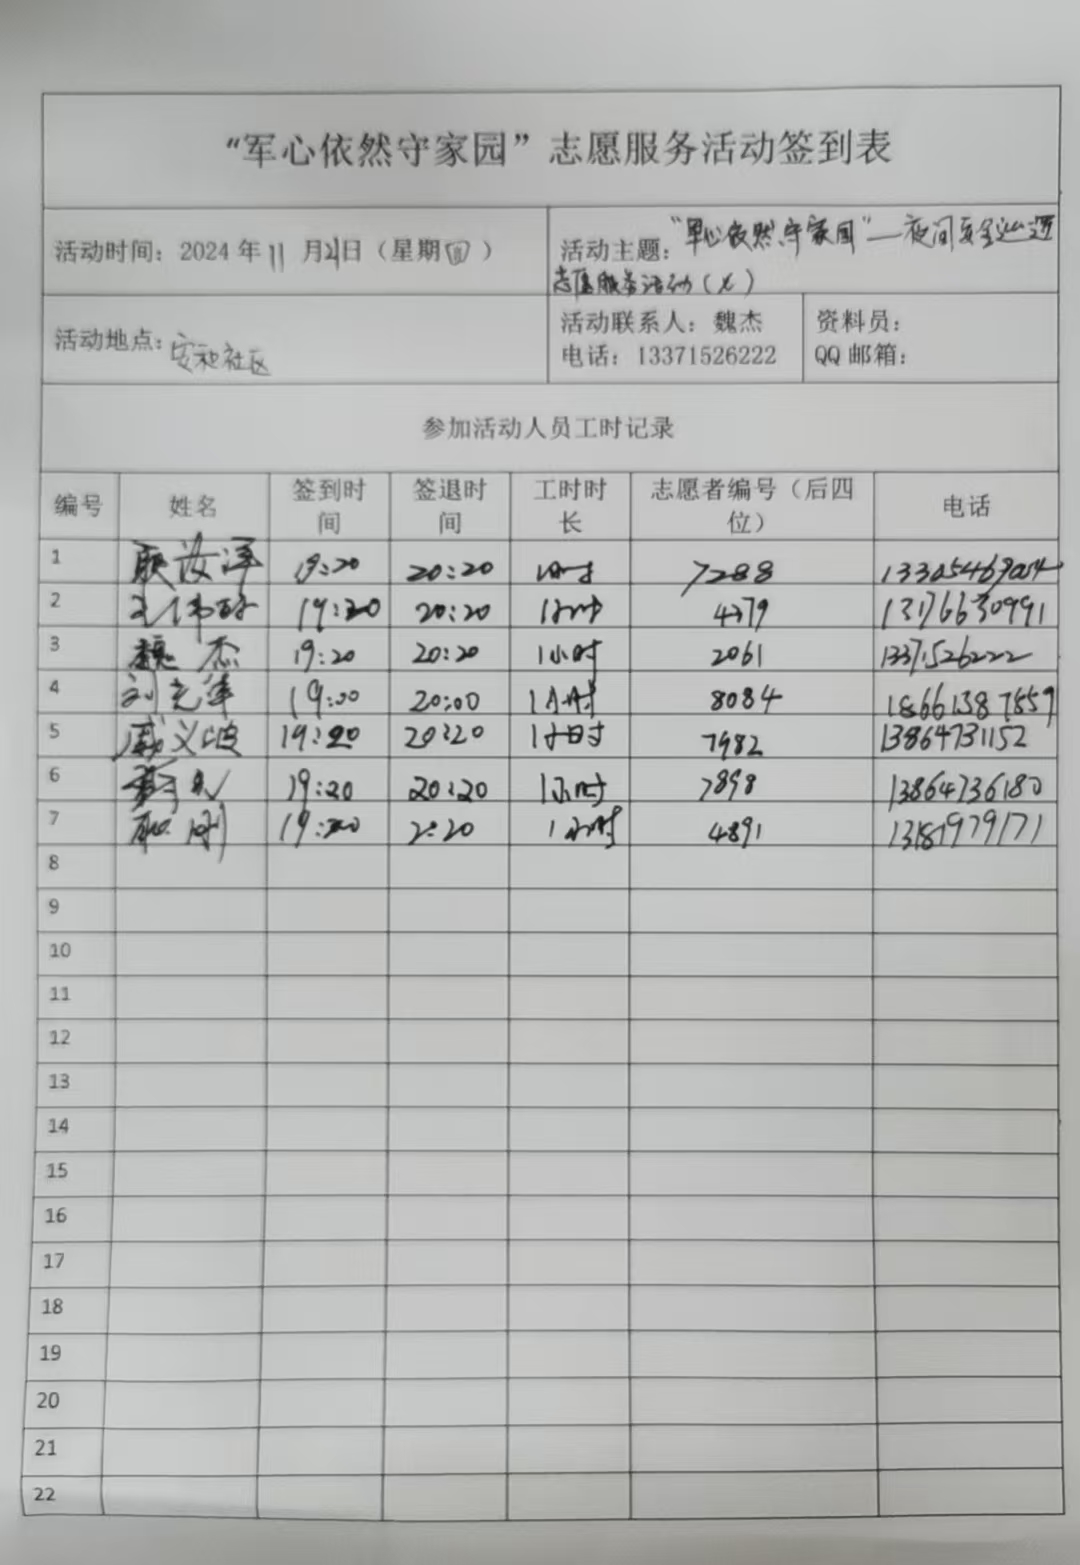 “军心依然守家园”志愿服务活动签到表
活动时间：2024 年 11 月 21 日（星期四）
活动主题：“军心依然守家园”—夜间安全巡逻
志愿服务活动（七）
活动地点：安和社区
活动联系人：魏杰
电话：13371526222
资料员：
QQ 邮箱：
参加活动人员工时记录
编号 姓名 签到时间 签退时间 工时时长 志愿者编号（后四位） 电话
1 19:20 20:20 1小时 7288
2 19:20 20:20 1小时 4379 13176630991
3 魏杰 19:20 20:20 1小时 2061 13371526222
4 19:00 20:00 1小时 8084 18661387859
5 19:20 20:20 1小时 7982 13864731152
6 19:20 20:20 1小时 7898 13864736180
7 刚 19:20 2:20 1小时 4891 13181979171
8
9
10
11
12
13
14
15
16
17
18
19
20
21
22